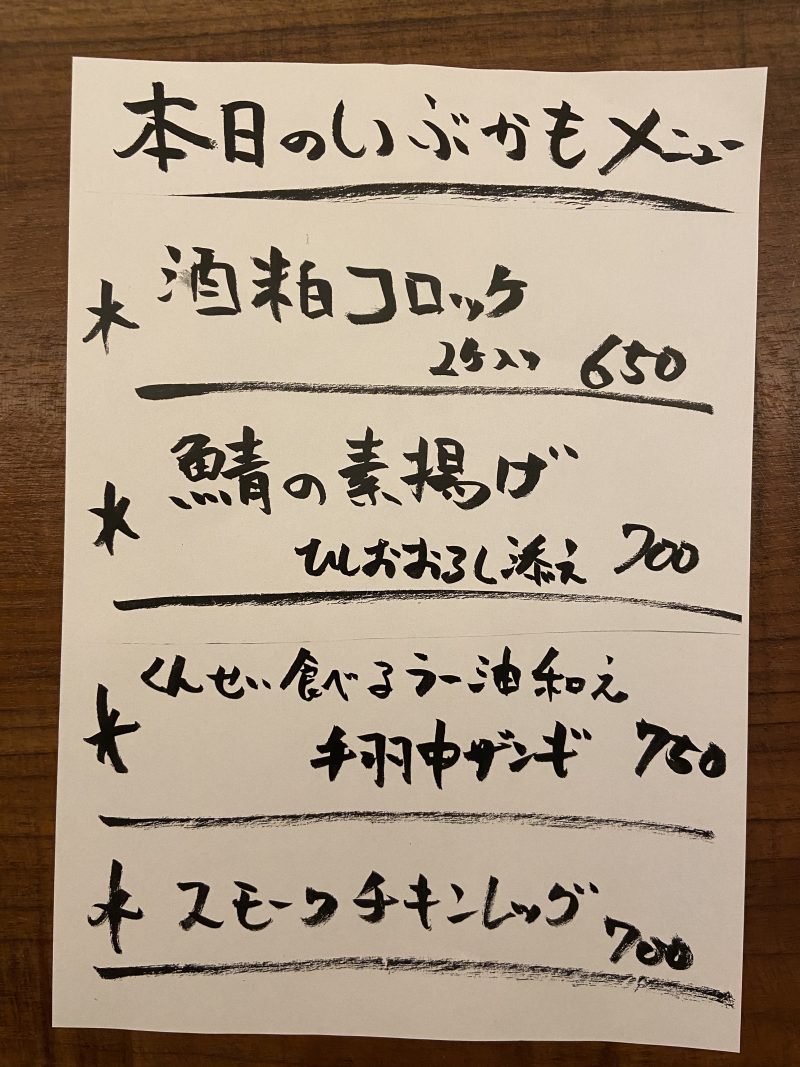 本日のいぶかもメニュー
酒粕コロッケ
2ケ入り 650
鯖の素揚げ
ひしおおろし添え 700
くんせい食べるラー油和え
手羽中ザンギ 750
スモークチキンレッグ 700